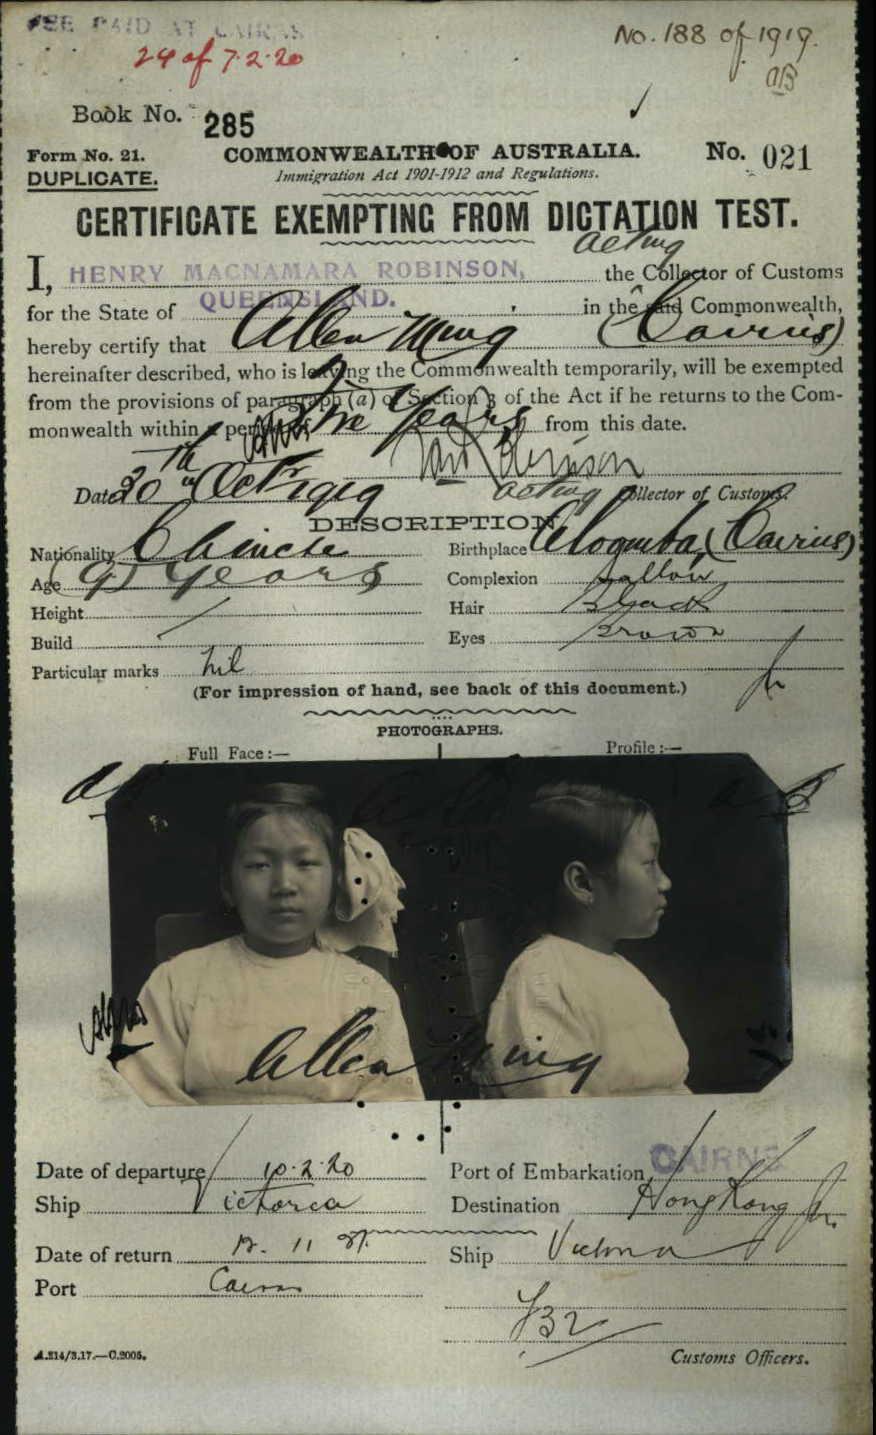 FEE PAID AT CAIRNS
24 of 7.2.20
No. 188 of 1919.
Book No. 285
Form No. 21. COMMONWEALTH OF AUSTRALIA. No. 021
DUPLICATE. Immigration Act 1901-1912 and Regulations.
CERTIFICATE EXEMPTING FROM DICTATION TEST.
acting
I, HENRY MACNAMARA ROBINSON, the Collector of Customs
for the State of QUEENSLAND. in the said Commonwealth,
hereby certify that Ming (Cairns)
hereinafter described, who is leaving the Commonwealth temporarily, will be exempted
from the provisions of paragraph (a) of Section 3 of the Act if he returns to the Com-
monwealth within a period of Years from this date.
Robinson
Date 30th Octr 1919 acting Collector of Customs.
DESCRIPTION.
Nationality Chinese Birthplace Aloomba, (Cairns)
Age (9) Years Complexion Sallow
Height Hair Black
Build Eyes Brown
Particular marks nil
(For impression of hand, see back of this document.)
PHOTOGRAPHS.
Full Face :— Profile :—
Ming
Date of departure 10.2.20 Port of Embarkation CAIRNS
Ship Victoria Destination Hong Kong
Date of return 12. 11 Ship Victoria
Port Cairns
A.214/3.17.—C.2005. Customs Officers.